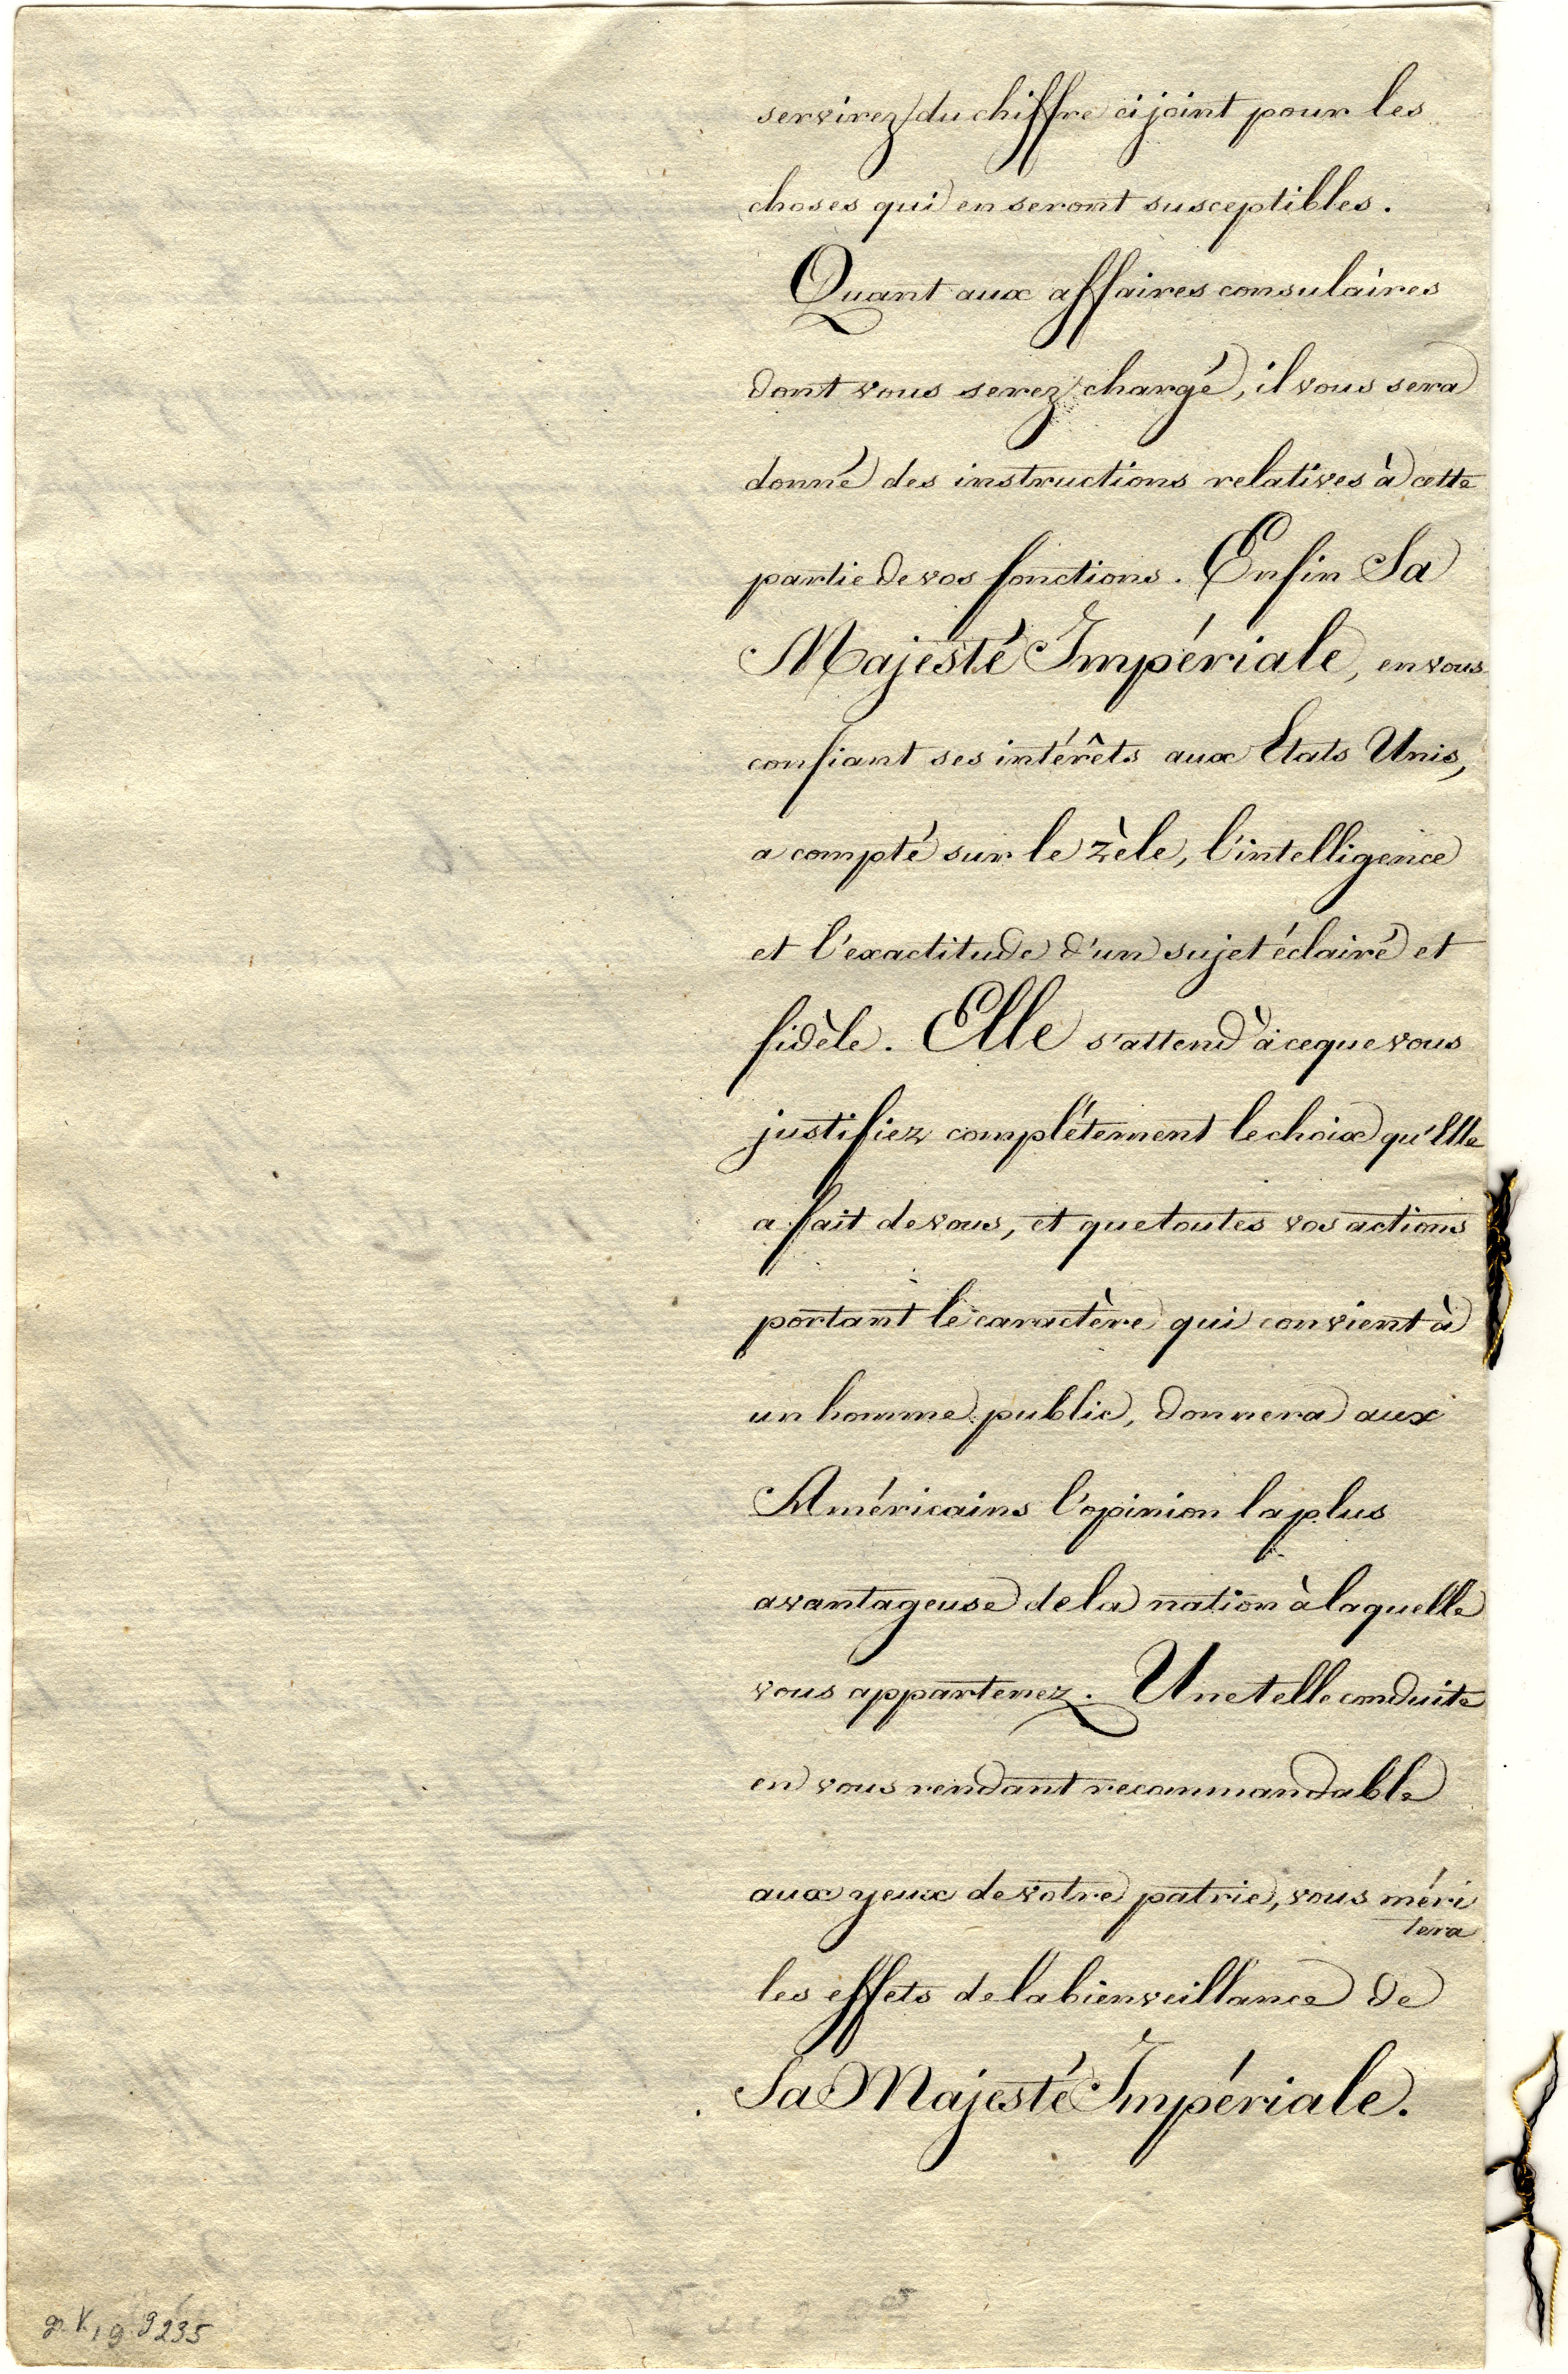 servirez du chiffre cijoint pour les
choses qui en seront susceptibles.
Quant aux affaires consulaires
dont vous serez chargé, il vous sera
donné des instructions relatives à cette
partie de vos fonctions. Enfin Sa
Majesté Impériale, en vous
confiant ses intérêts aux Etats Unis,
a compté sur le zèle, l'intelligence
et l'exactitude d'un sujet éclairé et
fidèle. Elle s'attend à ce que vous
justifiez complétement le choix qu'Elle
a fait de vous, et que toutes vos actions
portant le caractère qui convient à
un homme public, donnera aux
Américains l'opinion la plus
avantageuse de la nation à laquelle
vous appartenez. Une telle conduite
en vous rendant recommandable
aux yeux de votre patrie, vous méri
tera
les effets de la bienveillance de
Sa Majesté Impériale.
9235